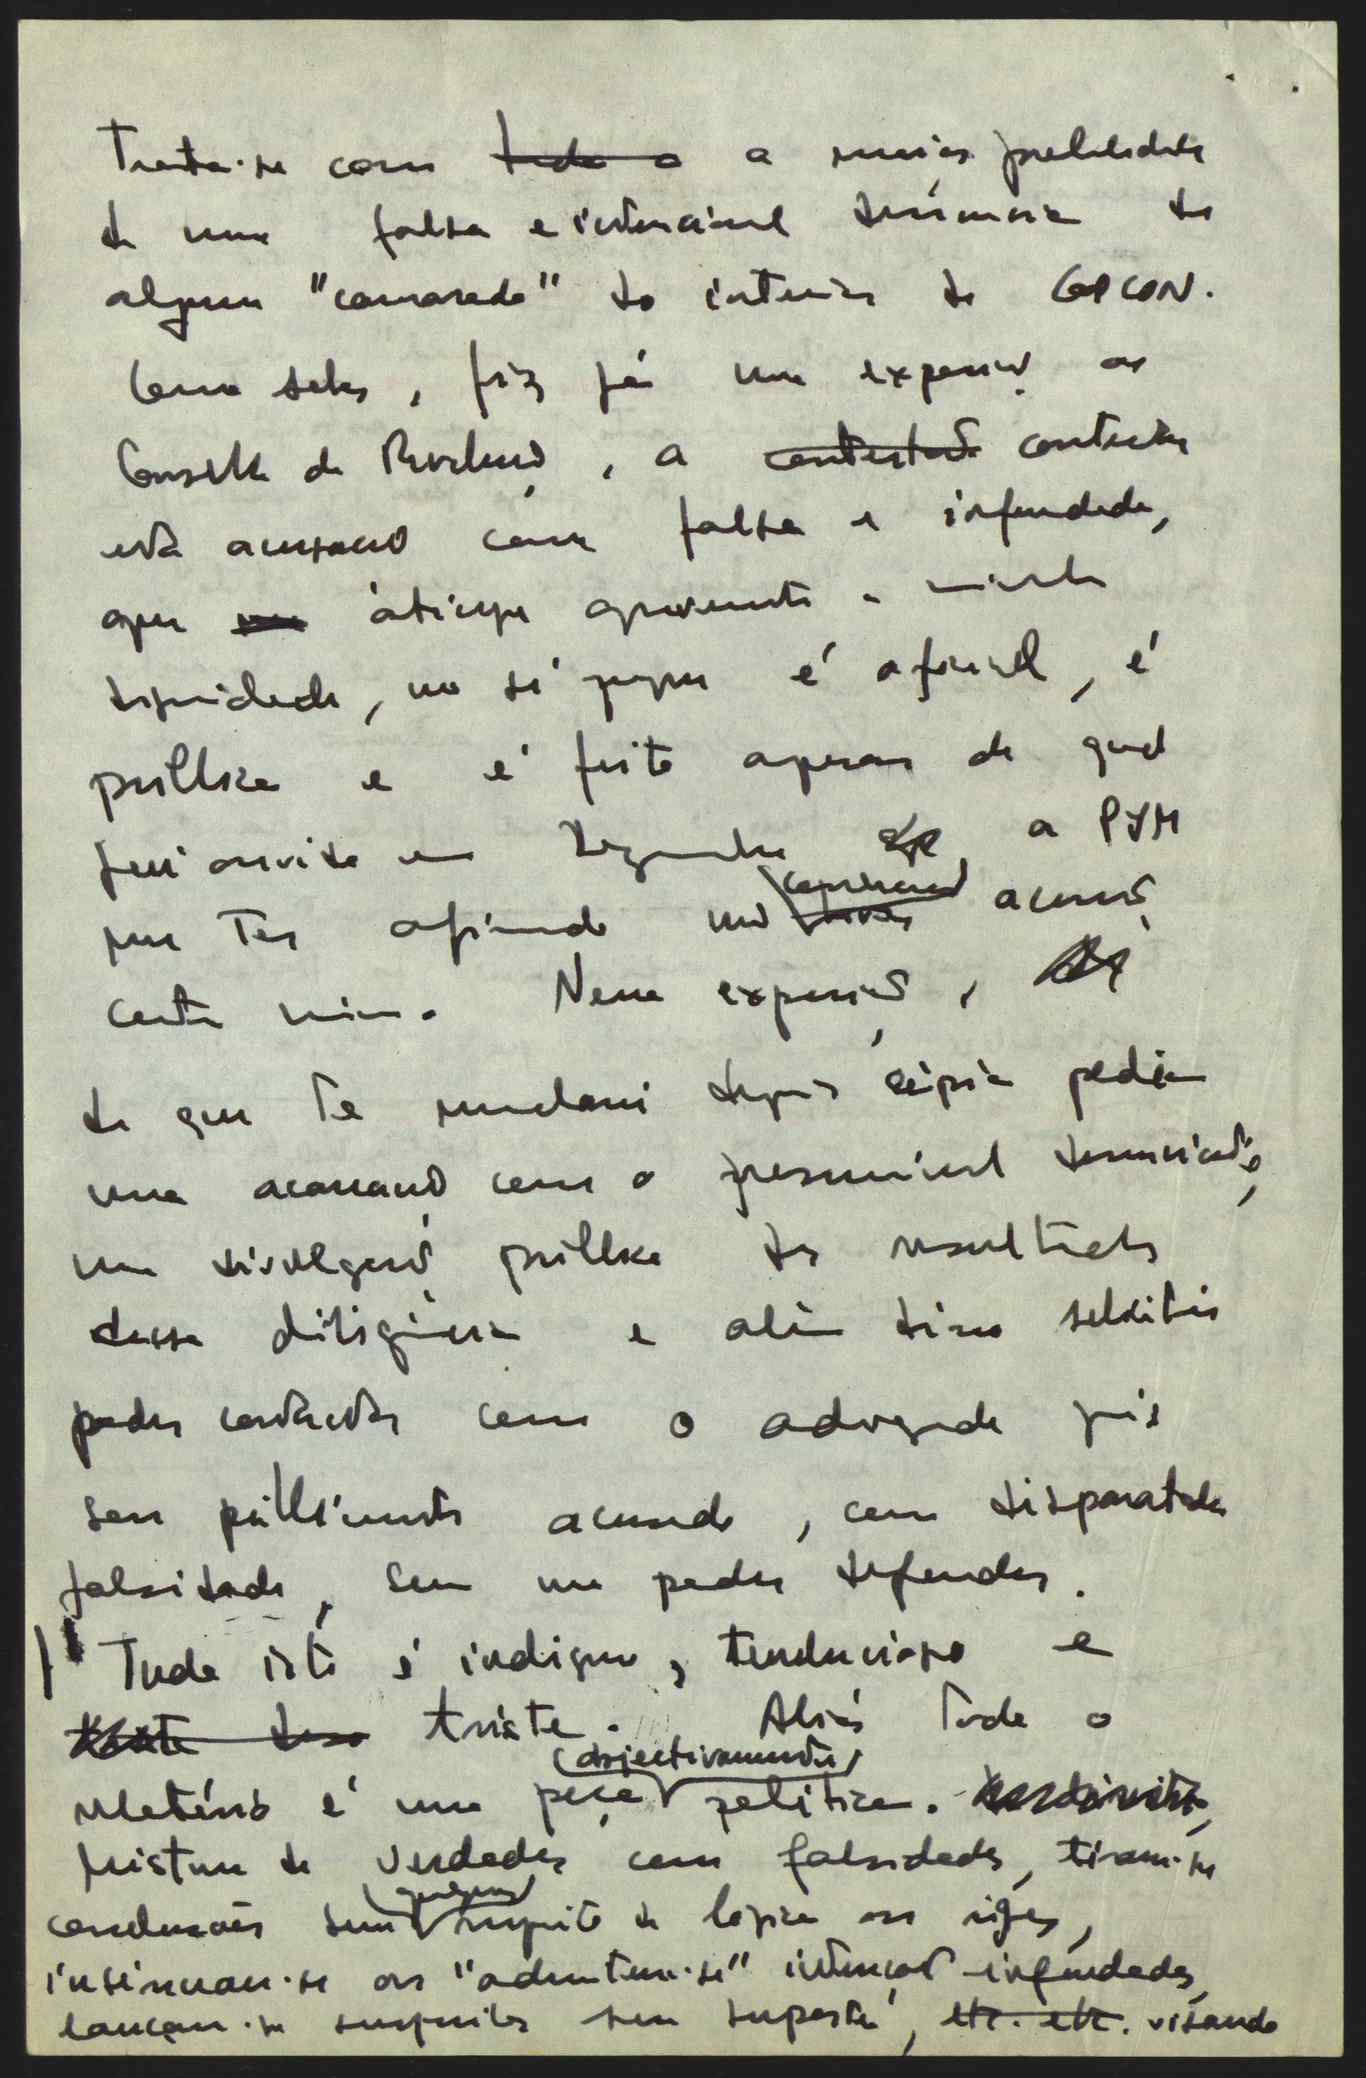 Trata-se com tudo a a maior probabilidade
de uma falsa e intencional denúncia de
algum "camarada" do interior do COPCON.
Como sabes, fiz já uma exposição ao
Conselho da Revolução, a contestação contestar
esta acusação como falsa e infundada,
que atinge gravemente a minha
dignidade, no só porque é oficial, é
pública e é feita apesar de qual
fui ouvido em a PJM
me ter afirmado não haver comprovado acusação
contra mim. Nessa exposição,
de que te mandarei depois cópia pedia
uma acareação com o presumível denunciante,
uma divulgação pública dos resultados
dessa diligência e além disso solicitei
poder contactar com o advogado pois
sou públicamente acusado, com disparatada
falsidade, sem me poder defender.
Tudo isto é indigno, tendencioso e
triste. Aliás todo o
relatório é uma peça objectivamente política.
Mistura de verdades com falsidades, tiram-se
conclusões sem qualquer respeito de lógica ou rigor,
insinuam-se ou "admitem-se" intenções infundadas,
lançam-se suspeitas sem suporte, etc. etc. visando